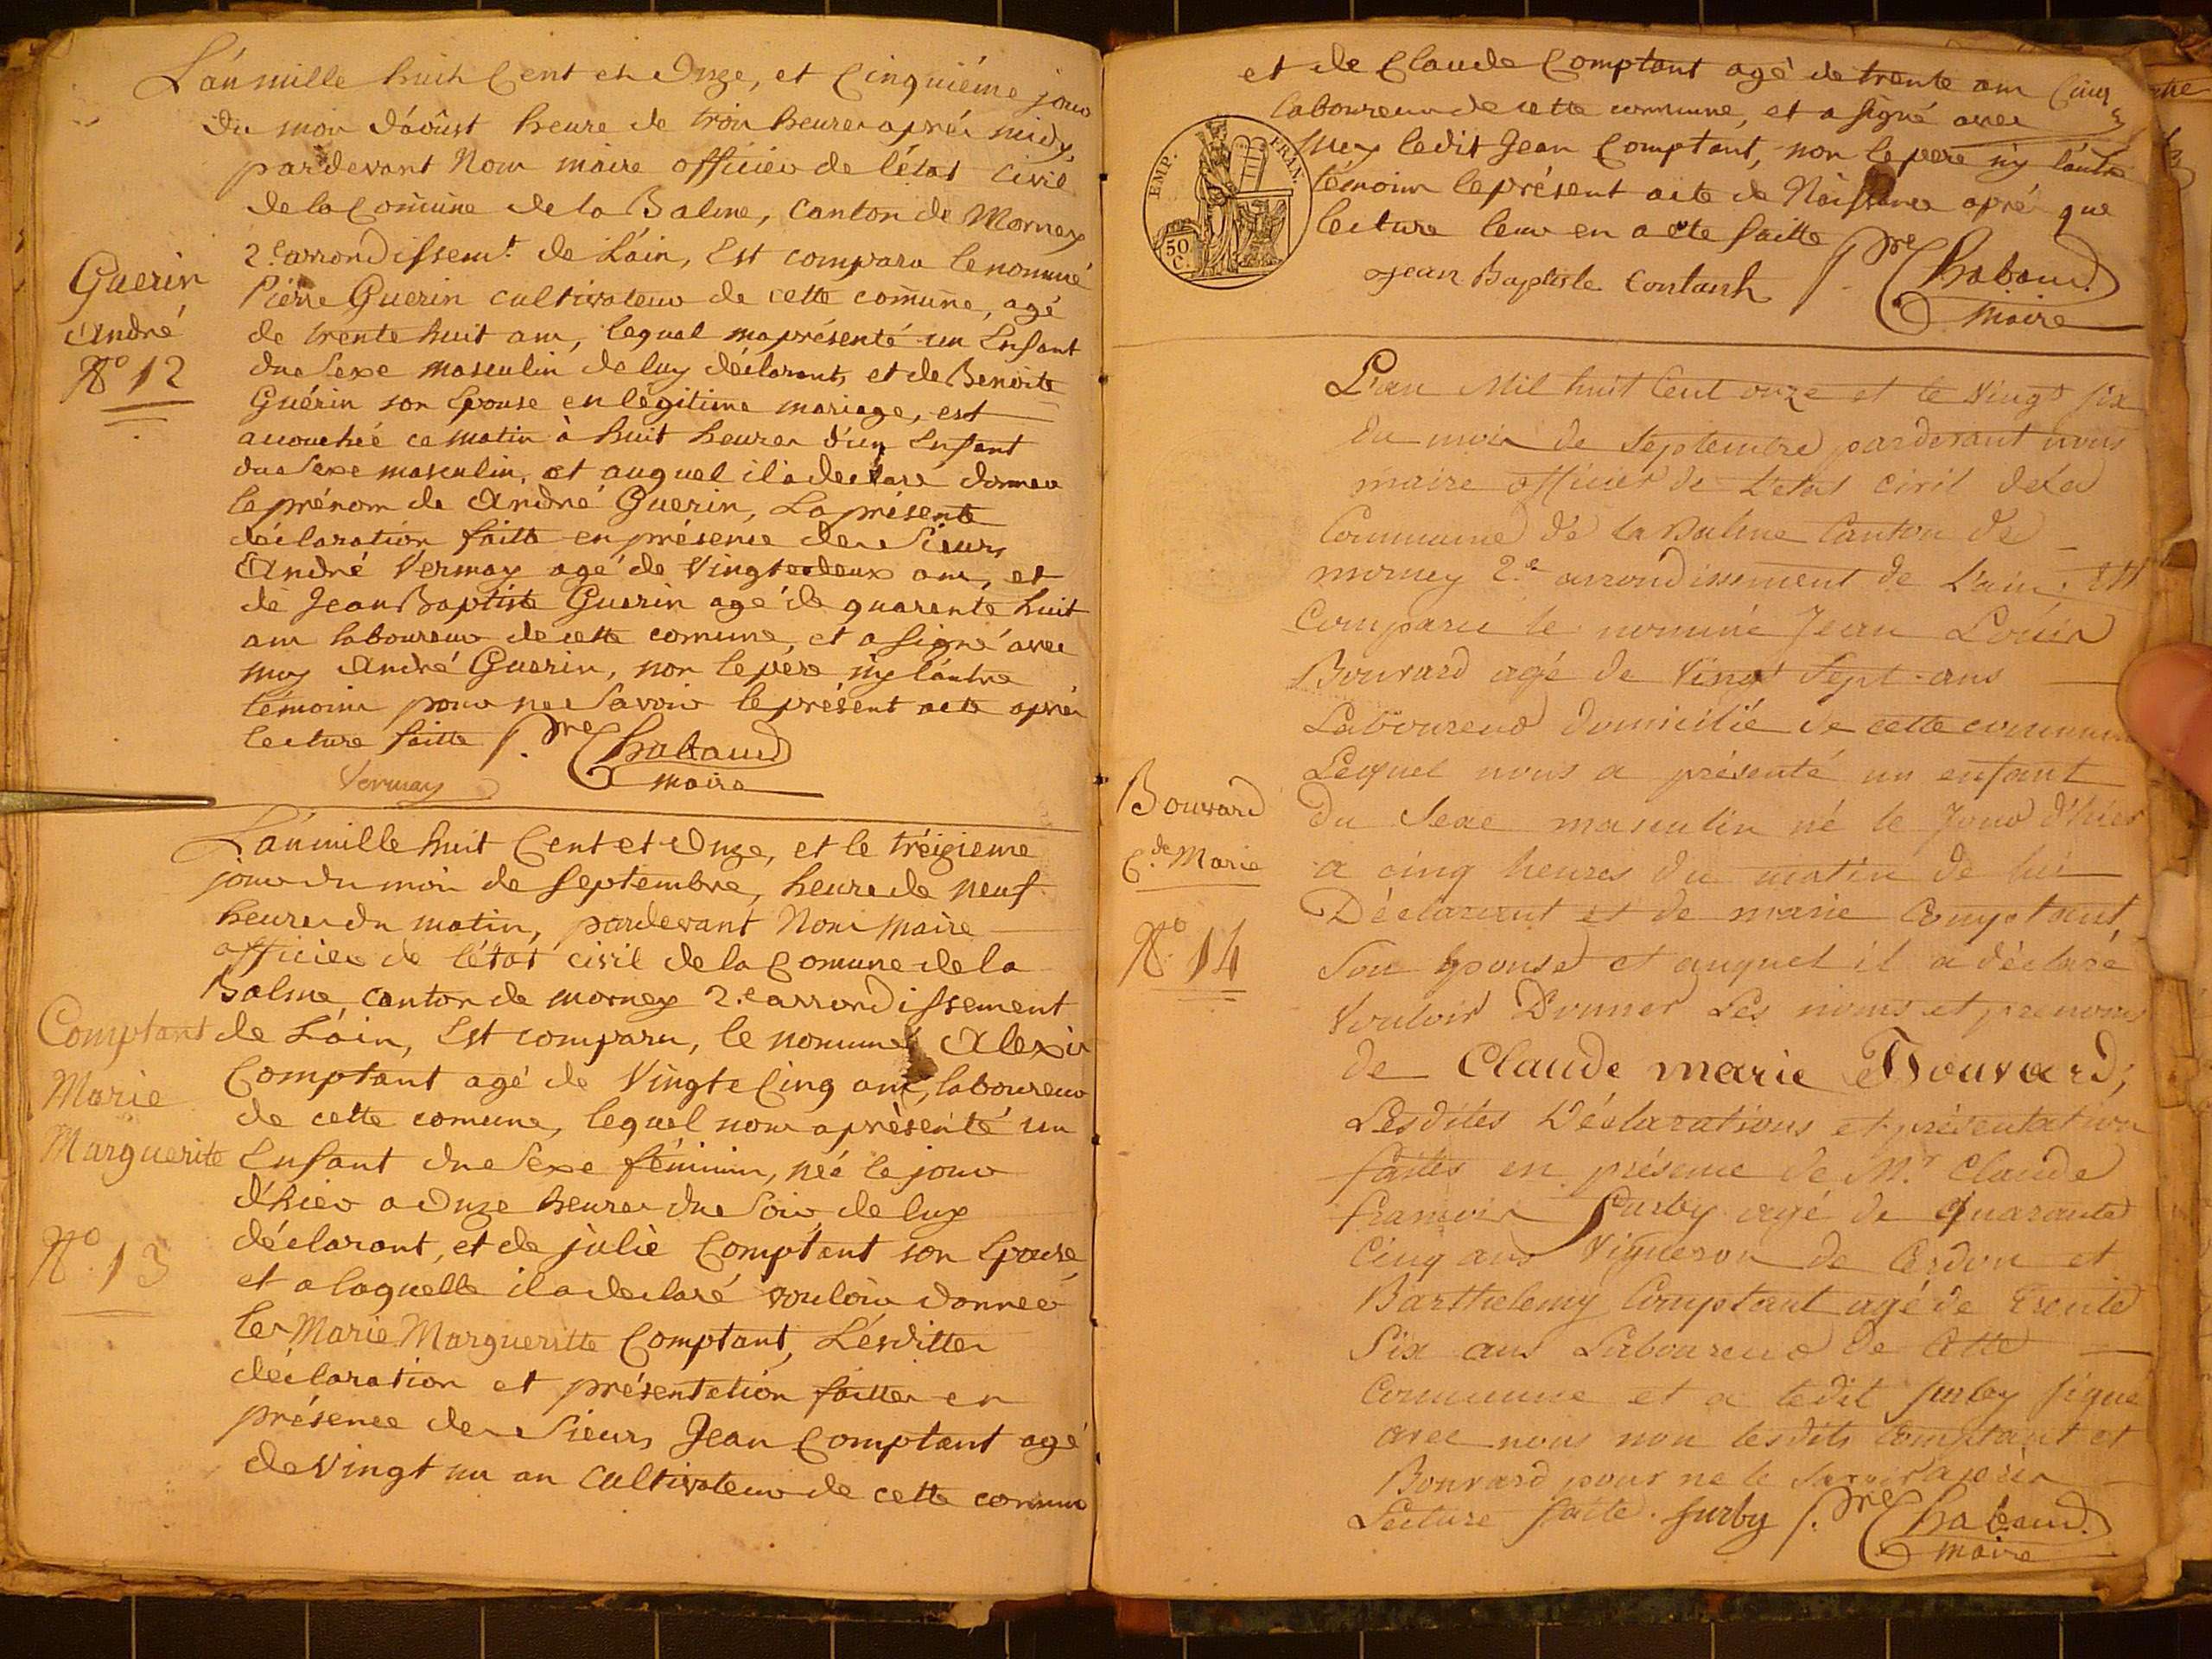 L'an mille huit Cent et Onze, et Cinquiéme jour
du mois d'août heure de trois heures aprés midy,
pardevant Nous maire officier de l'état Civil
de la Comune de la Balme, Canton de Mornay
2.e arrondissem.t de L'ain, Est comparu le nommé
Guerin
André
N.o 12
Pierre Guerin cultivateur de cette comune, agé
de trente huit ans, lequel m'a présenté un Enfant
du Sexe masculin de luy déclarant, et de Benoite
Guérin son Epouse en légitime mariage, est
accouchée ce matin à huit heures d'un Enfant
du Sexe masculin, et auquel il a declaré donner
le prénom de André Guerin, La présente
déclaration faitte en présence des Sieurs
André Vermay agé de Vingt deux ans, et
de Jean Baptiste Guerin agé de quarante huit
ans laboureur de cette comune, et a signé avec
moy André Guerin, non le pére n'y l'autre
témoins pour ne Savoir le présent acte aprés
lecture faitte P.re Chabaud
Vermay maire
L'an mille huit Cent et Onze, et le tréizieme
jour du mois de Septembre, heure de neuf
heures du matin, pardevant Nous Maire
officier de l'état civil de la Comune de la
Balme, canton de mornay 2.e arrondissement
Comptant
Marie
Marguerite
N.o 13
de L'ain, Est comparu, le nommé Alexis
Comptant agé de Vingt Cinq ans, laboureur
de cette comune, lequel nous a présenté un
Enfant du Sexe féminin, née le jour
d'hier a Onze heures du Soir, de luy
déclarant, et de julie Comptant son Epouse,
et a laquelle il a declaré vouloir donner
les Marie Margueritte Comptant, Lesdittes
déclaration et présentation faittes en
présence des Sieurs Jean Comptant agé
de Vingt un an Cultivateur de cette comune
et de Claude Comptant agé de trente ans
laboureur de cette commune, et a signé avec
EMP. FRAN.
50 C.
moy ledit Jean Comptant, non le pere n'y l'autre
témoins le présent acte de Naissance aprés que
lecture leur en a été faitte P.re Chabaud
Jean Baptiste Contant maire
L'an Mil huit Cent onze et le Vingt six
du mois de Septembre pardevant nous
maire officier de L'etat civil de La
Commune de la Balme Canton de
mornay 2.e arrondissement de L'ain, Est
Comparu le nommé Jean Louis
Bouvard agé de Vingt Sept ans
Laboureur domicilié de cette commune
Lequel nous a présenté un enfant
Bouvard
C.de Marie
N.o 14
Du Sexe masculin né le Jour d'hier
a cinq heures du matin de lui
Déclarant et de marie Comptant,
Son Epouse et auquel il a déclaré
Vouloir Donner Les noms et prenoms
de Claude marie Bouvard;
Lesdites Déclarations et présentation
faites en présence de M.r Claude
francois Surby agé de Quarante
Cinq ans Vigneron de Cerdon et
Barthelemy Comptant agé de Trente
Six ans Laboureur de Cette
Commune et a ledit Surby signé
avec nous non lesdits Comptant et
Bouvard pour ne le Savoir après
Lecture faite. Surby P.re Chabaud
maire